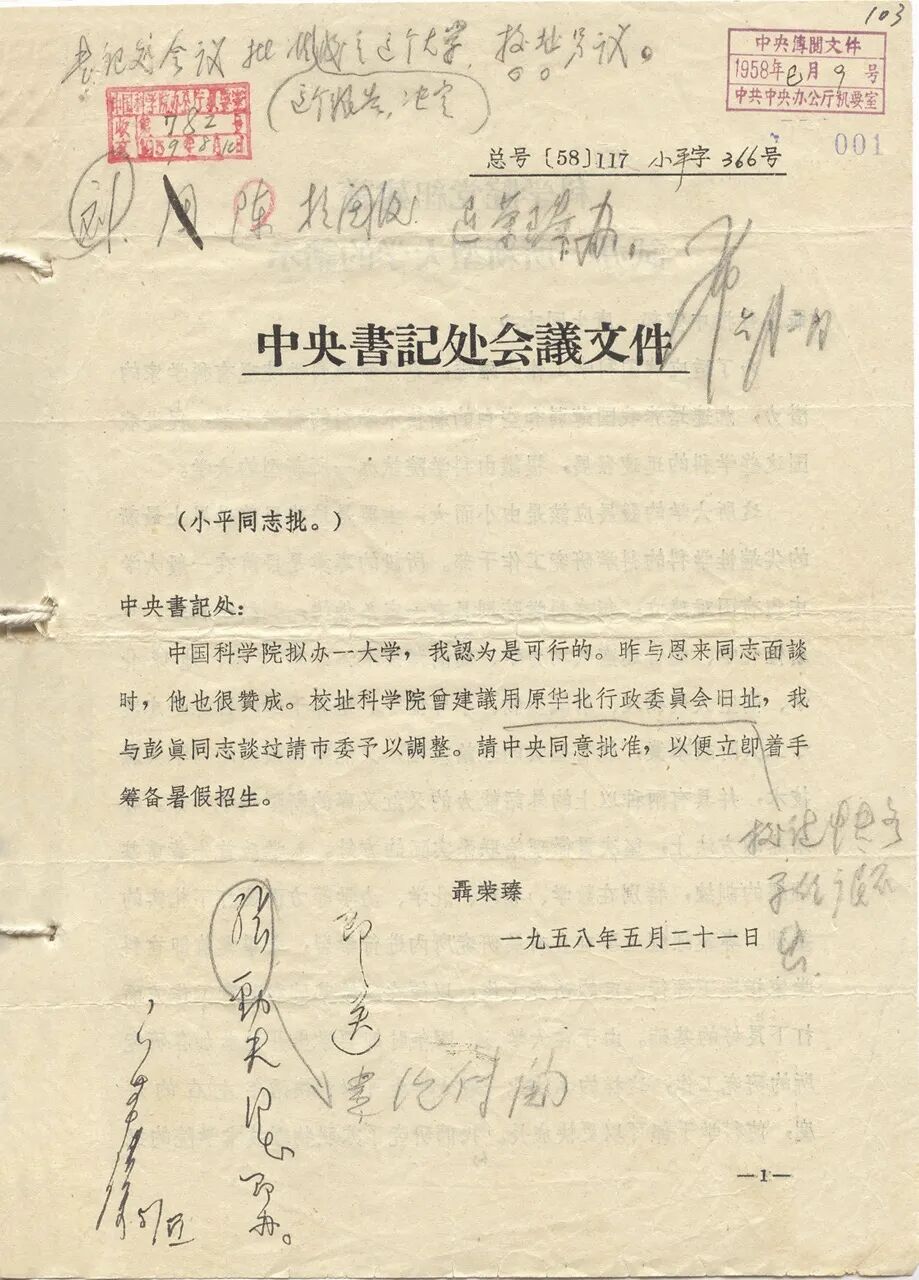 103
书記处会议批准成立这个大学，校址另议。
这个报告，决定
中央傳閱文件
1958年 月 9 号
中共中央办公厅机要室
中国科学院办公厅机要室
收 第 782 号
1959年8月 日
001
总号〔58〕117 小平字366号
刘 周 陈 
退荣臻办。
六月二日
中央書記处会議文件
（小平同志批。）
中央書记处：
中国科学院拟办一大学，我認为是可行的。昨与恩来同志面談
时，他也很赞成。校址科学院曾建議用原华北行政委員会旧址，我
与彭眞同志談过請市委予以調整。請中央同意批准，以便立卽着手
筹备暑假招生。
聶荣臻
一九五八年五月二十一日
即送
張劲夫同志
即办。
—1—